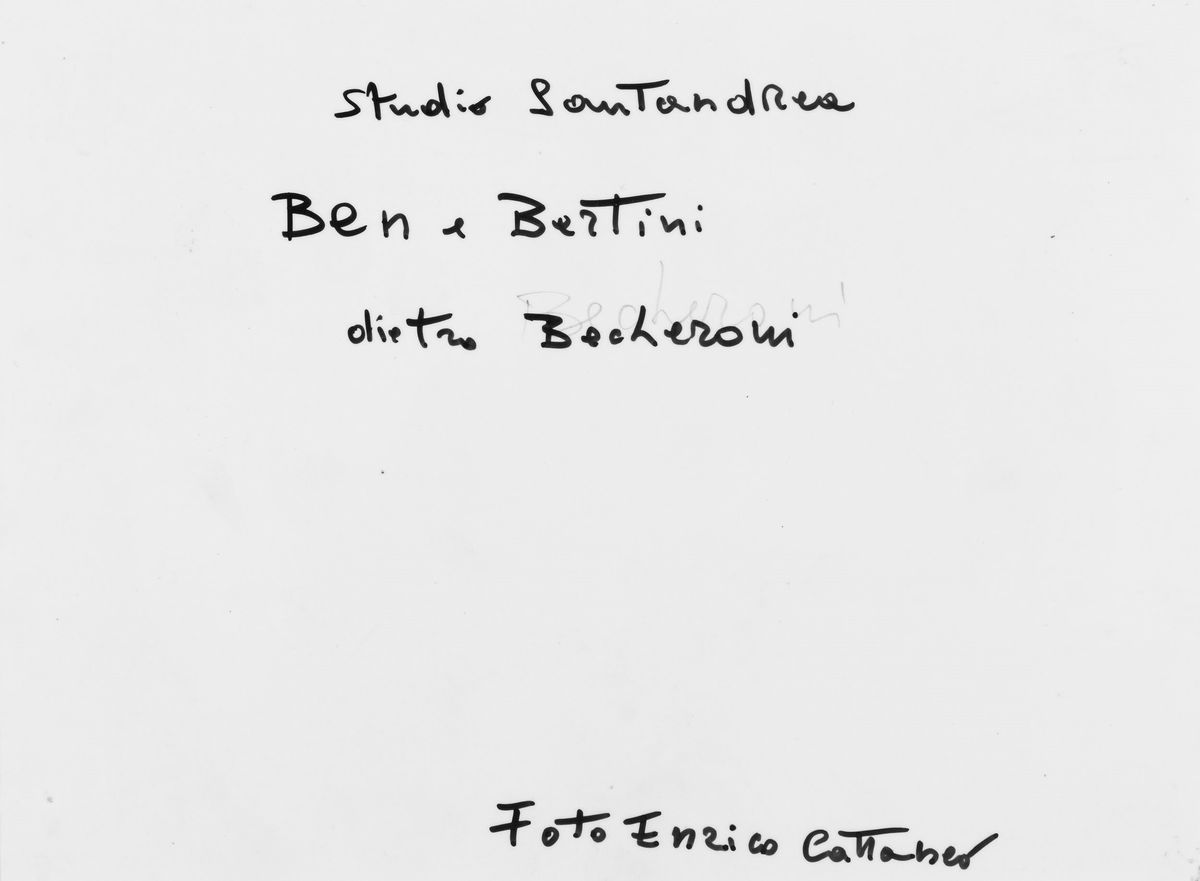 Studio SanTandRea
Ben e BerTini
Becheroni
dietro Becheroni
Foto Enrico CaTTaneo